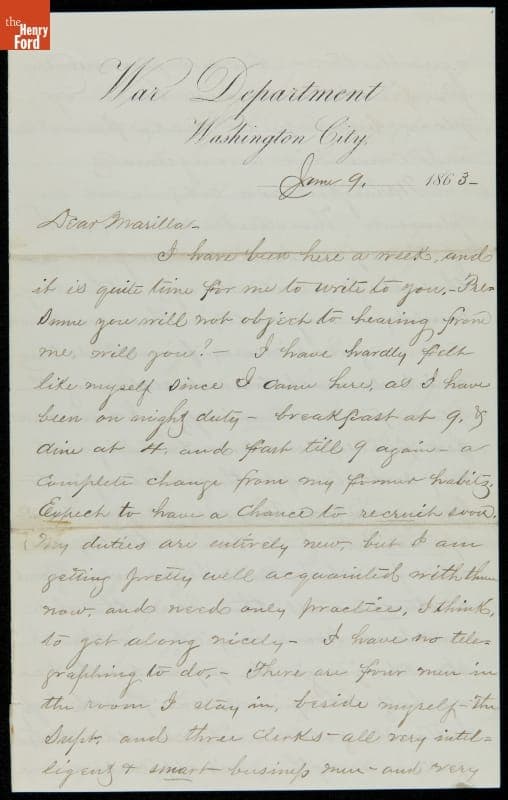 the
Henry
Ford
War Department
Washington City,
June 9. 1863-
Dear Marilla-
I have been here a week, and
it is quite time for me to write to you.- Pre-
sume you will not object to hearing from
me, will you? - I have hardly felt
like myself since I came here, as I have
been on night duty - breakfast at 9, &
dine at 4, and fast till 9 again - a
complete change from my former habits.
Expect to have a chance to recruit soon.
My duties are entirely new, but I am
getting pretty well acquainted with them
now, and need only practice, I think,
to get along nicely - I have no tele-
graphing to do, - There are four men in
the room I stay in, beside myself - the
Supt. and three clerks - all very intel-
ligent & smart business men - and very